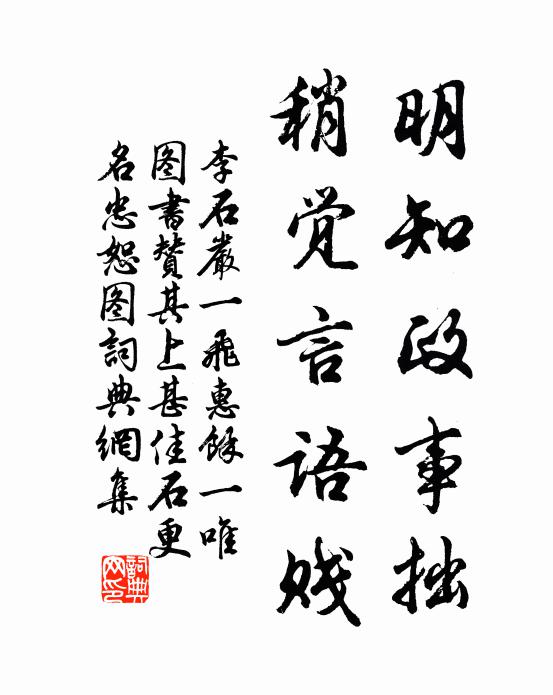 明知政事拙
稍觉言语贱
李石岩一飛惠餘一唯
图書赞其上甚佳石更
名忠恕图詞典網集
詞典
网印